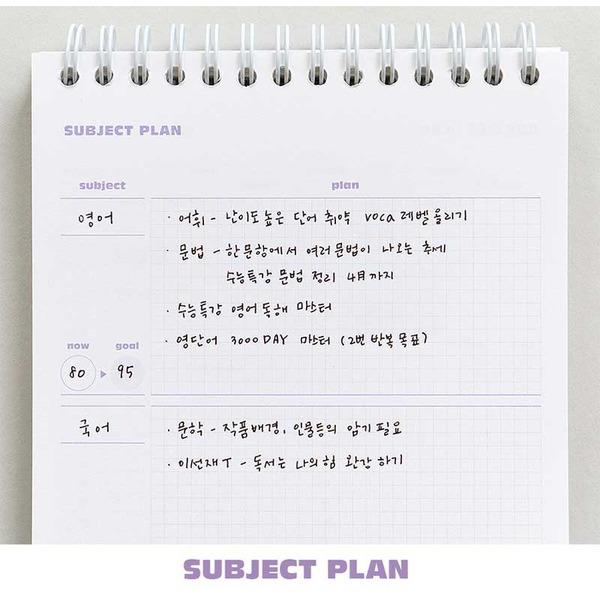 SUBJECT PLAN
subject
plan
영어
· 어휘 - 난이도높은 단어 취약 voca 레벨 올리기
· 문법 - 한문항에서 여러문법이 나오는 추세
수능특강 문법 정리 4月까지
· 수능특강 영어독해 마스터
· 영단어 3000 DAY 마스터 (2번 반복목표)
now
goal
80
95
국어
· 문학 - 작품배경, 인물등의 암기 필요
· 이선재T - 독서는 나의힘 완강 하기
SUBJECT PLAN